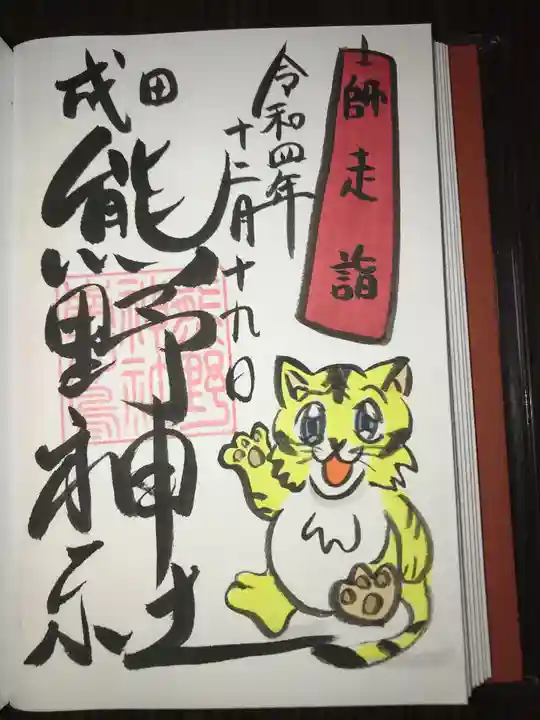 師走詣
令和四年
十二月十九日
成田
熊野神社